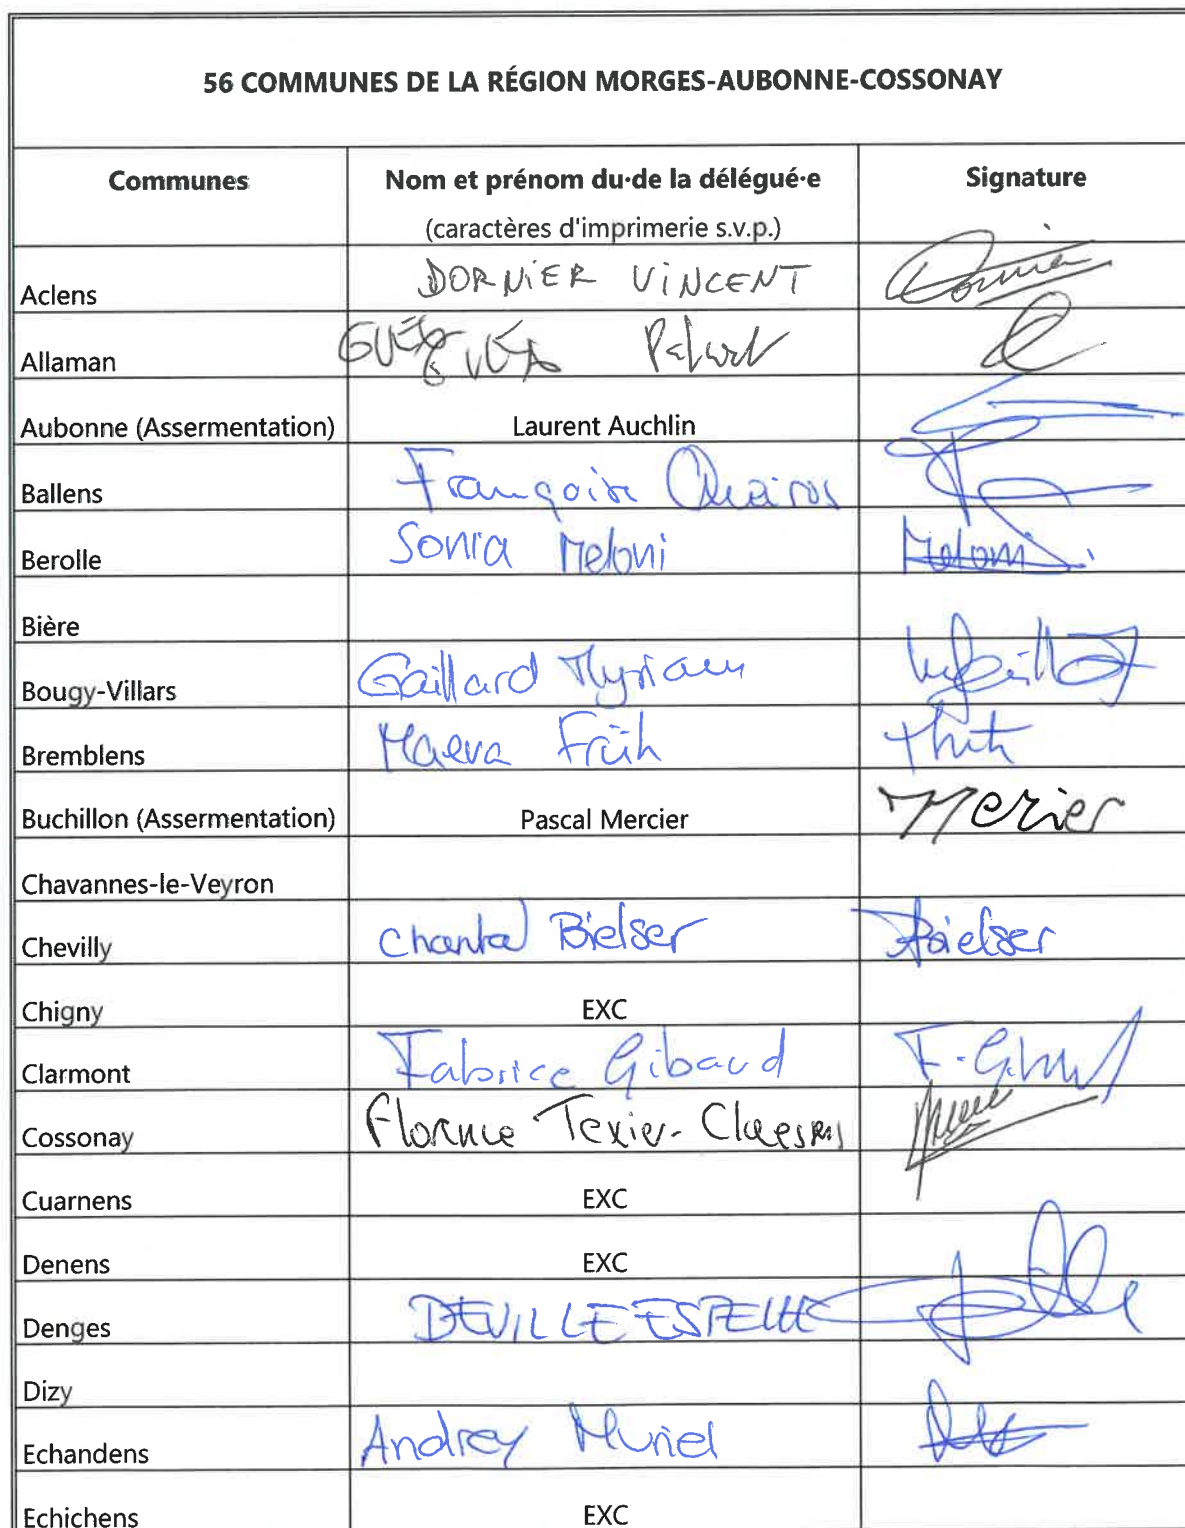 56 COMMUNES DE LA RÉGION MORGES-AUBONNE-COSSONAY
Communes Nom et prénom du·de la délégué·e Signature
(caractères d'imprimerie s.v.p.)
Aclens DORNIER VINCENT
Allaman
Aubonne (Assermentation) Laurent Auchlin
Ballens Françoise Queiros
Berolle Sonia Meloni Meloni
Bière
Bougy-Villars Gaillard Myriam
Bremblens Maeva Früh
Buchillon (Assermentation) Pascal Mercier Mercier
Chavannes-le-Veyron
Chevilly Chantal Bielser Bielser
Chigny EXC
Clarmont Fabrice Gibaud
Cossonay Florence Texier-Claessens
Cuarnens EXC
Denens EXC
Denges DEVILLE ESTELLE
Dizy
Echandens Andrey Muriel
Echichens EXC